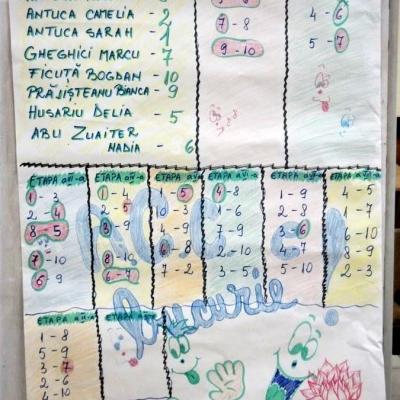 ANTUCA CAMELIA - 2
ANTUCA SARAH - 1
GHEGHICI MARCU - 7
FICUȚĂ BOGDAN - 10
PRĂJIȘTEANU BIANCA - 9
HUSARIU DELIA - 5
ABU ZUAITER
NADIA - 6
7 - 8
9 - 10
4 - 6
5 - 7
ETAPA
1 - 3
2 - 4
8 - 5
7 - 10
6 - 9
ETAPA
1 - 4
2 - 5
3 - 9
8 - 10
6 - 7
ETAPA
1 - 5
3 - 10
4 - 9
6 - 8
7 - 2
ETAPA
4 - 8
1 - 6
7 - 9
2 - 10
3 - 5
ETAPA
1 - 9
2 - 8
3 - 6
4 - 7
5 - 10
4 - 5
1 - 7
6 - 10
8 - 9
2 - 3
bucurie
ETAPA
1 - 8
5 - 9
3 - 7
2 - 6
4 - 10
ETAPA